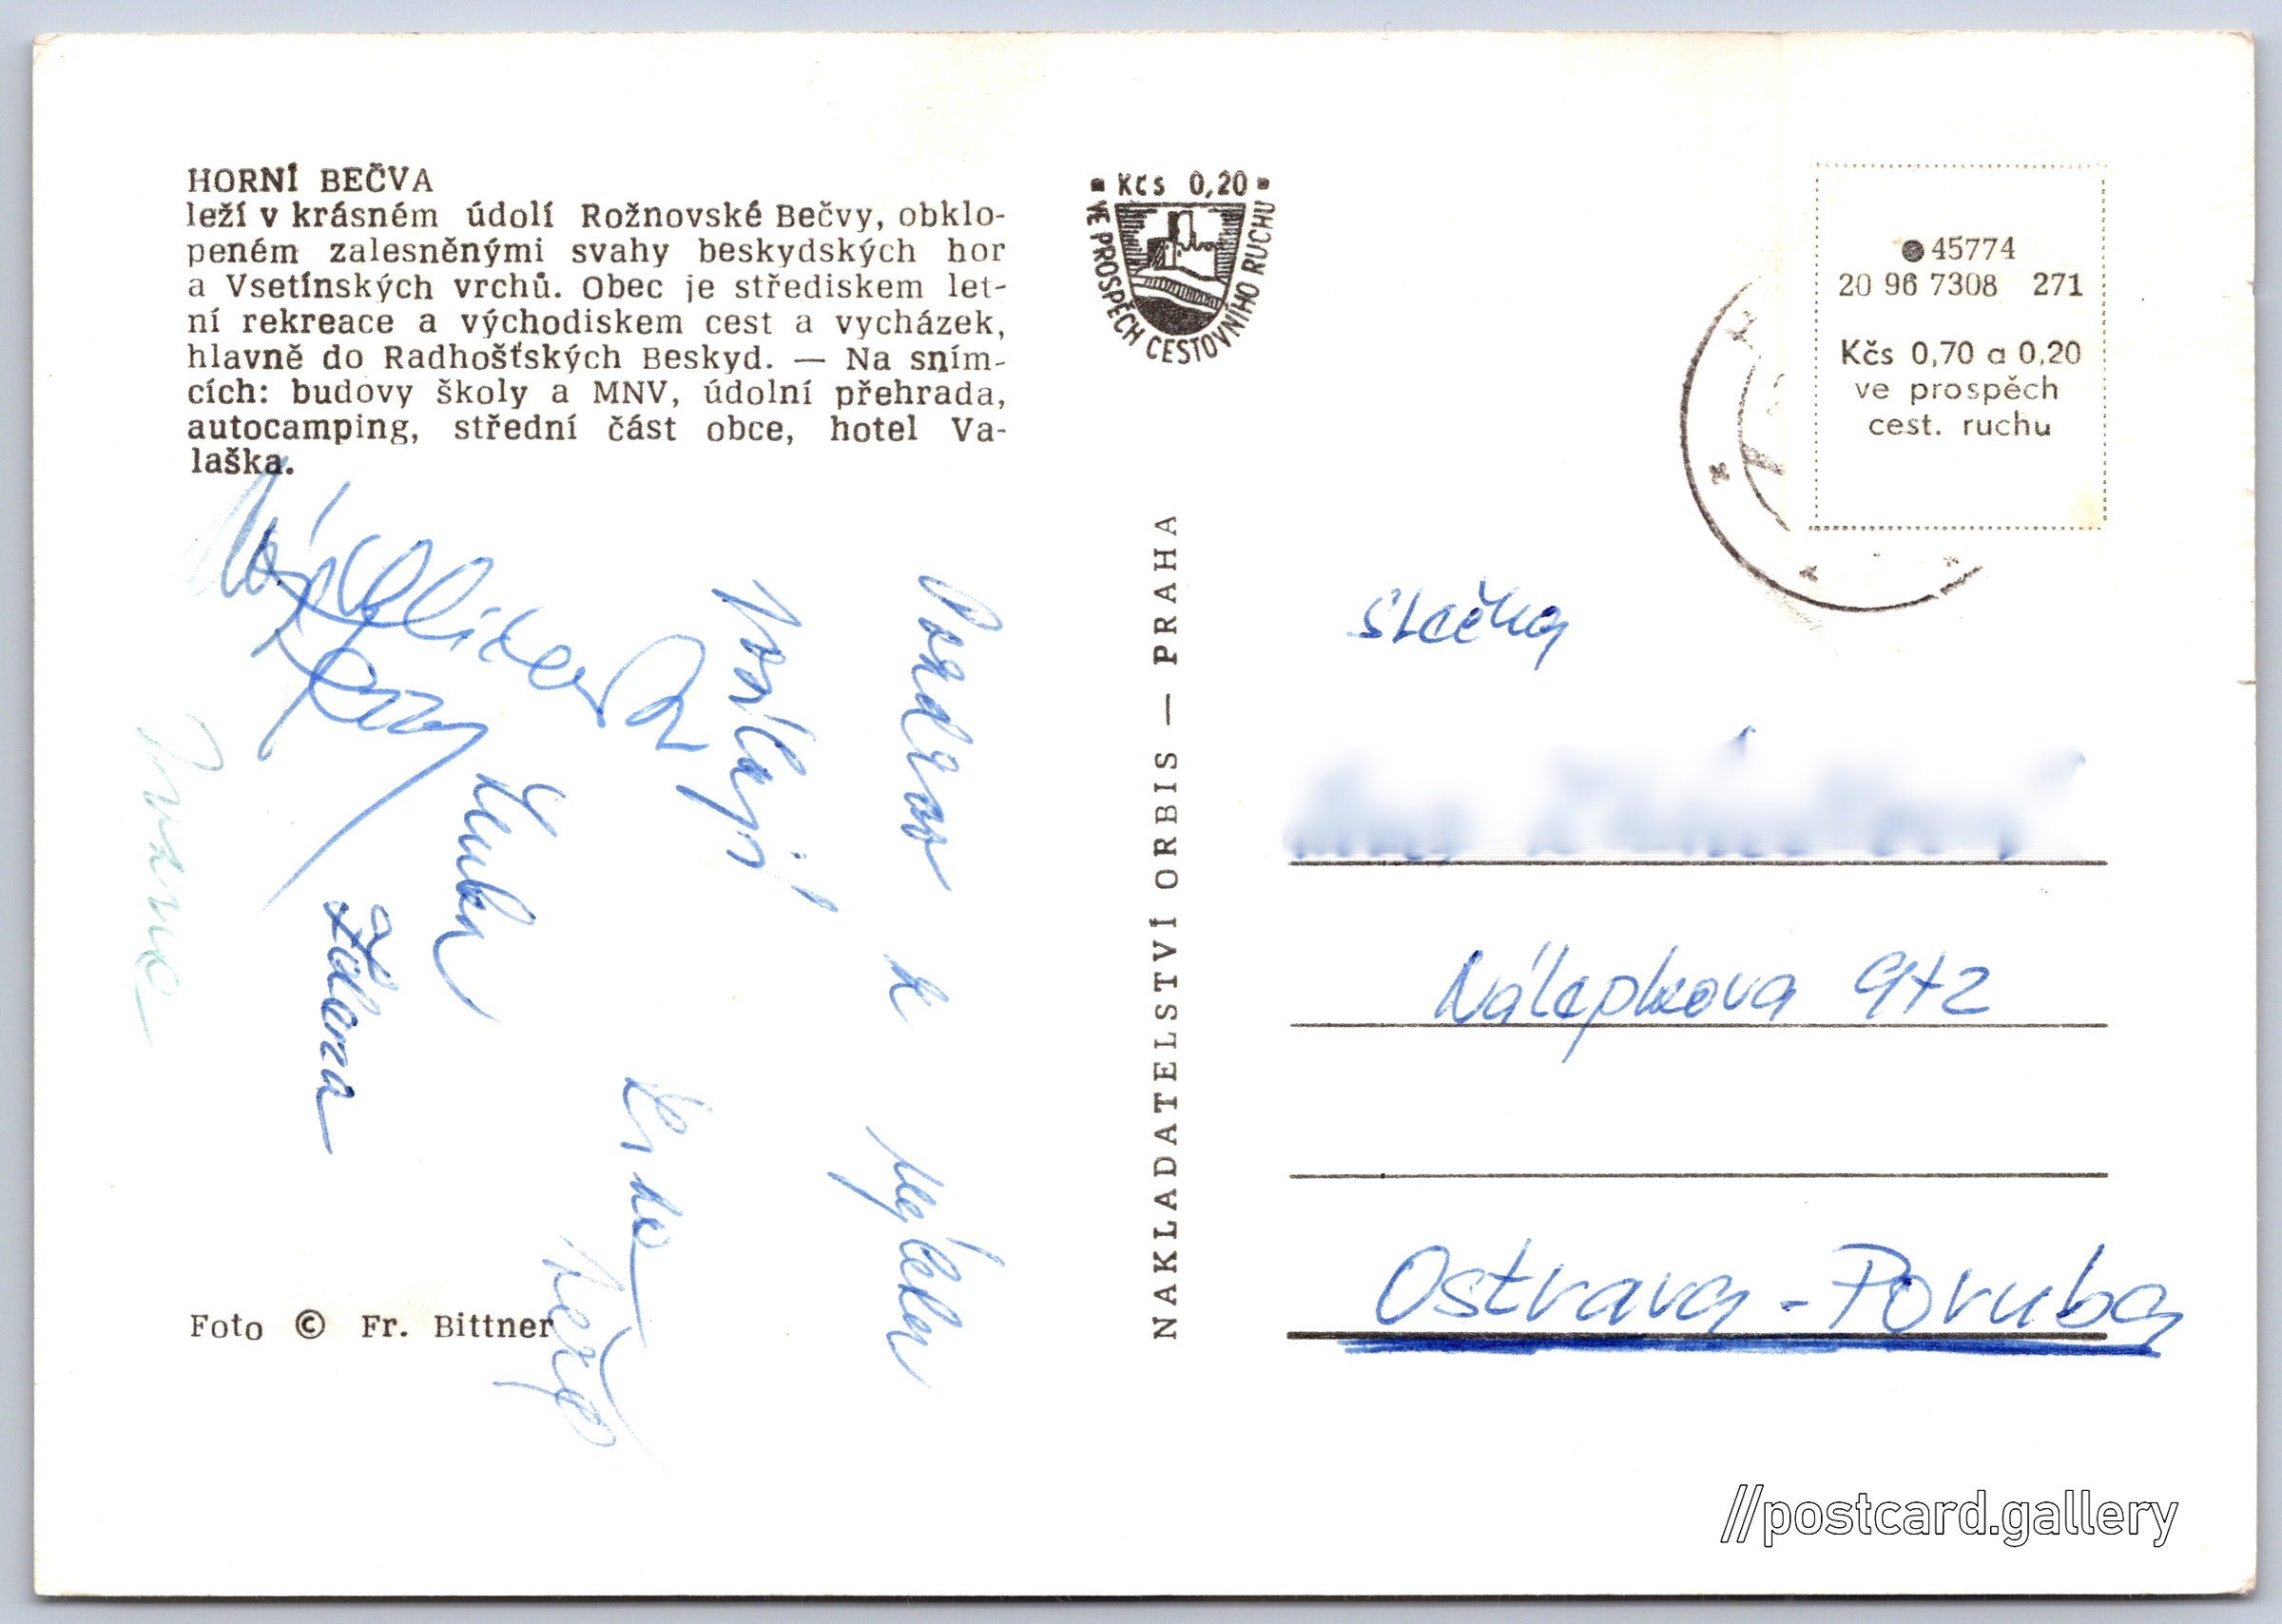 HORNÍ BEČVA
leží v krásném údolí Rožnovské Bečvy, obklo-
peném zalesněnými svahy beskydských hor
a Vsetínských vrchů. Obec je střediskem let-
ní rekreace a východiskem cest a vycházek,
hlavně do Radhošťských Beskyd. — Na sním-
cích: budovy školy a MNV, údolní přehrada,
autocamping, střední část obce, hotel Va-
laška.
Pozdrav
posílají
Zdena
Foto © Fr. Bittner
NAKLADATELSTVÍ ORBIS — PRAHA
Kčs 0,20
VE PROSPĚCH CESTOVNÍHO RUCHU
45774
20 96 7308 271
Kčs 0,70 a 0,20
ve prospěch
cest. ruchu
slečna
Nálepkova 972
Ostrava - Poruba
//postcard.gallery